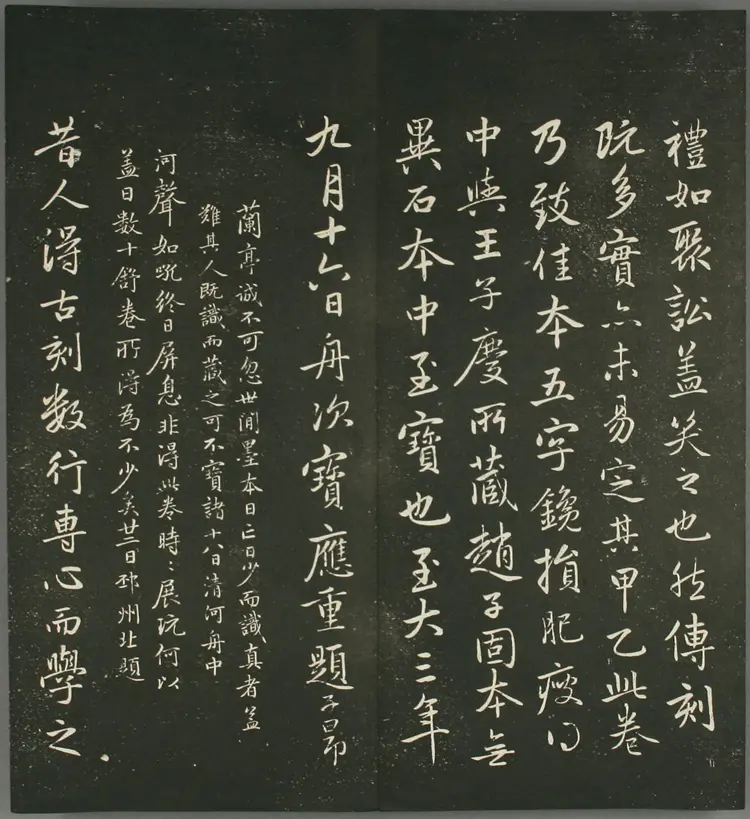 禮如聚訟蓋笑之也然傳刻
既多實亦未易定其甲乙此卷
乃致佳本五字鑱損肥瘦得
中與王子慶所藏趙子固本無
異石本中至寶也至大三年
九月十六日舟次寶應重題子昂
蘭亭誠不可忽世間墨本日亡日少而識真者蓋
難其人既識而藏之可不寶諸十八日清河舟中
河聲如吼終日屏息非得此卷時〻展玩何以
蓋日數十舒卷所得為不少矣廿二日邳州北題
昔人得古刻数行專心而學之